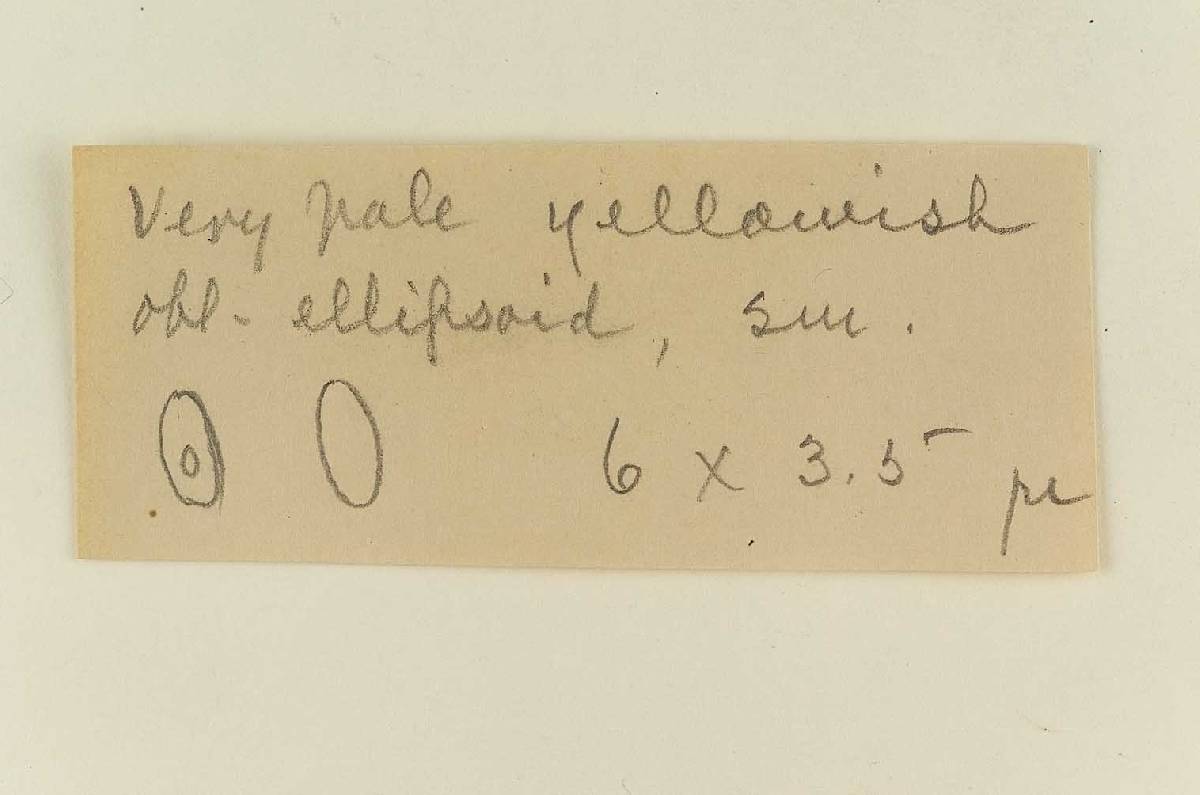 Very pale yellowish
obl-ellipsoid, sm.
6 x 3.5 µ